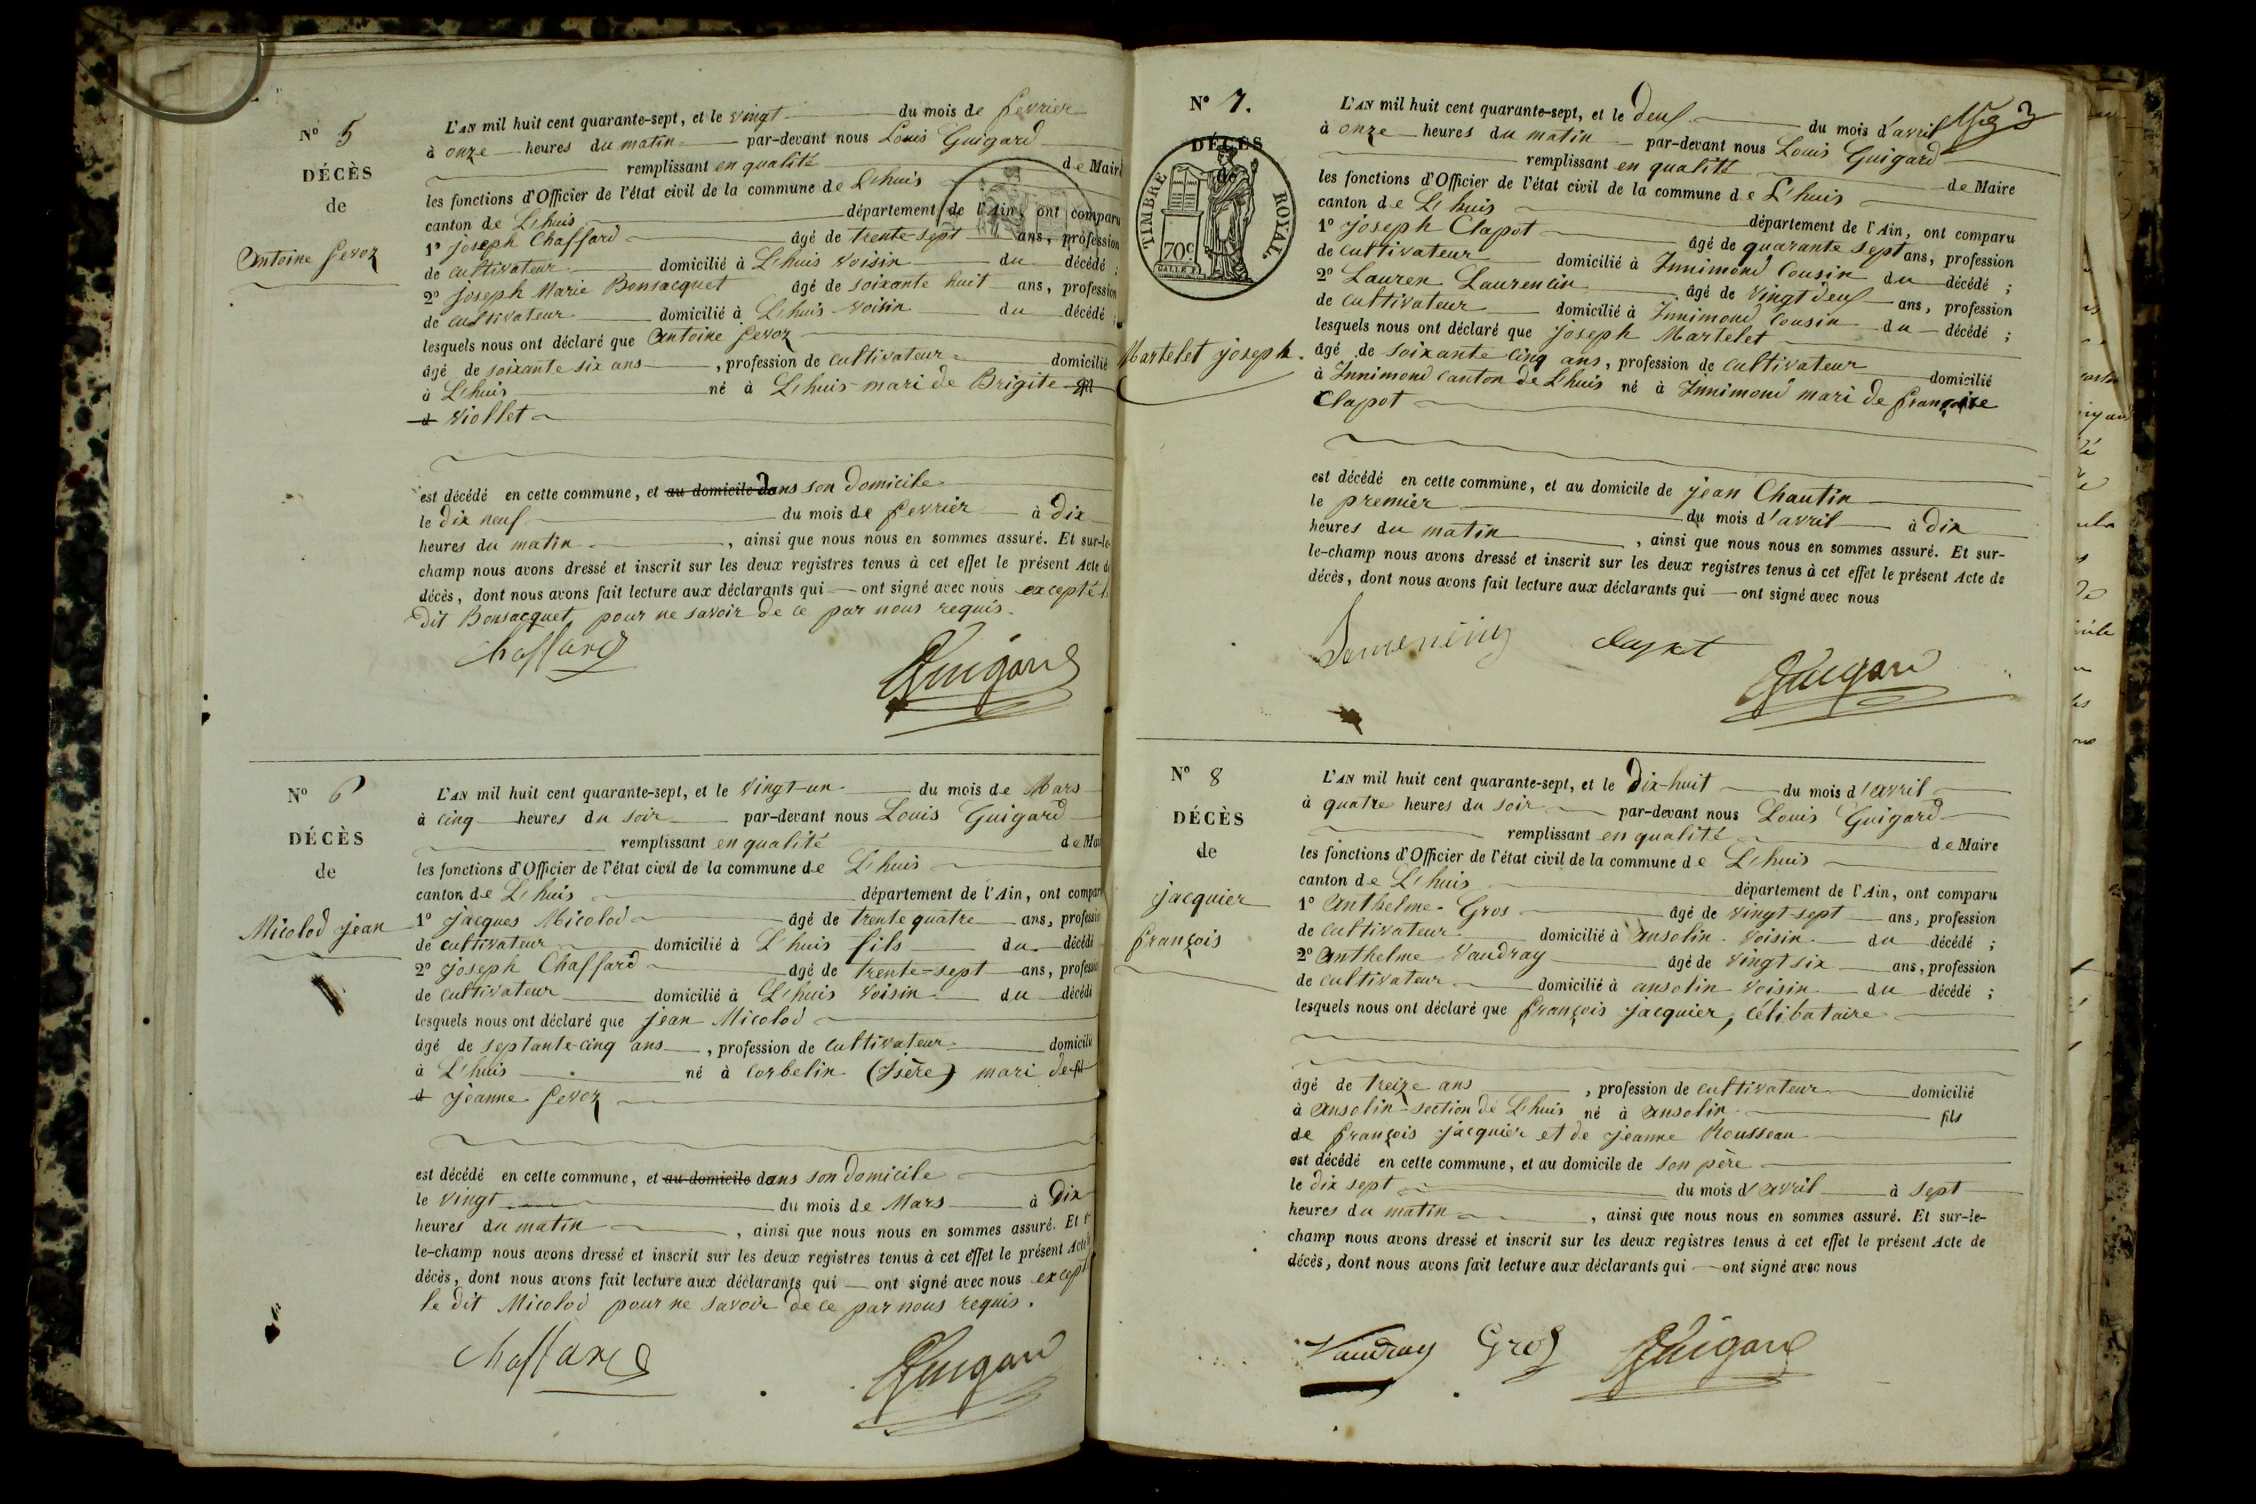 N° 5
DÉCÈS
de
Antoine Fevoz
L'AN mil huit cent quarante-sept, et le vingt du mois de Fevrier
à onze heures du matin par-devant nous Louis Guigard
remplissant en qualité de Maire
les fonctions d'Officier de l'état civil de la commune de L'huis
canton de L'huis département de l'Ain, ont comparu
1° joseph Chaffard âgé de trente-sept ans, profession
de cultivateur domicilié à L'huis voisin du décédé ;
2° joseph Marie Bonsacquet âgé de soixante huit ans, profession
de cultivateur domicilié à L'huis voisin du décédé ;
lesquels nous ont déclaré que Antoine Fevoz
âgé de soixante six ans, profession de cultivateur domicilié
à L'huis né à L'huis mari de Brigite
Viollet
est décédé en cette commune, et au domicile dans son domicile
le dix neuf du mois de Fevrier à Dix
heures du matin, ainsi que nous nous en sommes assuré. Et sur-le-
champ nous avons dressé et inscrit sur les deux registres tenus à cet effet le présent Acte de
décès, dont nous avons fait lecture aux déclarants qui ont signé avec nous excepté le
dit Bonsacquet pour ne savoir de ce par nous requis.
Chaffard
Guigard
N° 6
DÉCÈS
de
Micolod jean
L'AN mil huit cent quarante-sept, et le vingt-un du mois de Mars
à cinq heures du soir par-devant nous Louis Guigard
remplissant en qualité de Mai
les fonctions d'Officier de l'état civil de la commune de L'huis
canton de L'huis département de l'Ain, ont comparu
1° jacques Micolod âgé de trente quatre ans, profession
de cultivateur domicilié à L'huis fils du décédé
2° joseph Chaffard âgé de trente-sept ans, profession
de cultivateur domicilié à L'huis voisin du décédé
lesquels nous ont déclaré que jean Micolod
âgé de septante-cinq ans, profession de cultivateur domicilié
à L'huis né à Corbelin (Isère) mari de fil
d jeanne Fevoz
est décédé en cette commune, et au domicile dans son domicile
le vingt du mois de Mars à Dix
heures du matin, ainsi que nous nous en sommes assuré. Et
le-champ nous avons dressé et inscrit sur les deux registres tenus à cet effet le présent Acte
décès, dont nous avons fait lecture aux déclarants qui ont signé avec nous except
le dit Micolod pour ne savoir de ce par nous requis.
Chaffard
Guigard
3
N° 7.
DÉCÈS
de
TIMBRE ROYAL.
70c
Martelet joseph.
L'AN mil huit cent quarante-sept, et le deux du mois d'avril
à onze heures du matin par-devant nous Louis Guigard
remplissant en qualité de Maire
les fonctions d'Officier de l'état civil de la commune de L'huis
canton de L'huis département de l'Ain, ont comparu
1° joseph Clapot âgé de quarante sept ans, profession
de cultivateur domicilié à Innimond Cousin du décédé ;
2° Lauren Laurencin âgé de vingt deux ans, profession
de cultivateur domicilié à Innimond Cousin du décédé ;
lesquels nous ont déclaré que joseph Martelet
âgé de soixante-cinq ans, profession de cultivateur domicilié
à Innimond canton de L'huis né à Innimond mari de Françoise
Clapot
est décédé en cette commune, et au domicile de jean Chautin
le premier du mois d'avril à dix
heures du matin, ainsi que nous nous en sommes assuré. Et sur-
le-champ nous avons dressé et inscrit sur les deux registres tenus à cet effet le présent Acte de
décès, dont nous avons fait lecture aux déclarants qui ont signé avec nous
Guigard
N° 8
DÉCÈS
de
jacquier
françois
L'AN mil huit cent quarante-sept, et le Dix-huit du mois d'avril
à quatre heures du soir par-devant nous Louis Guigard
remplissant en qualité de Maire
les fonctions d'Officier de l'état civil de la commune de L'huis
canton de L'huis département de l'Ain, ont comparu
1° Anthelme Gros âgé de vingt-sept ans, profession
de cultivateur domicilié à Ansolin voisin du décédé ;
2° Anthelme Vaudray âgé de vingt six ans, profession
de cultivateur domicilié à ansolin voisin du décédé ;
lesquels nous ont déclaré que françois jacquier, célibataire
âgé de treize ans, profession de cultivateur domicilié
à Ansolin section de L'huis né à Ansolin fils
de françois jacquier et de jeanne Rousseau
est décédé en cette commune, et au domicile de son père
le dix sept du mois d'avril à sept
heures du matin, ainsi que nous nous en sommes assuré. Et sur-le-
champ nous avons dressé et inscrit sur les deux registres tenus à cet effet le présent Acte de
décès, dont nous avons fait lecture aux déclarants qui ont signé avec nous
Vaudray Gros Guigard